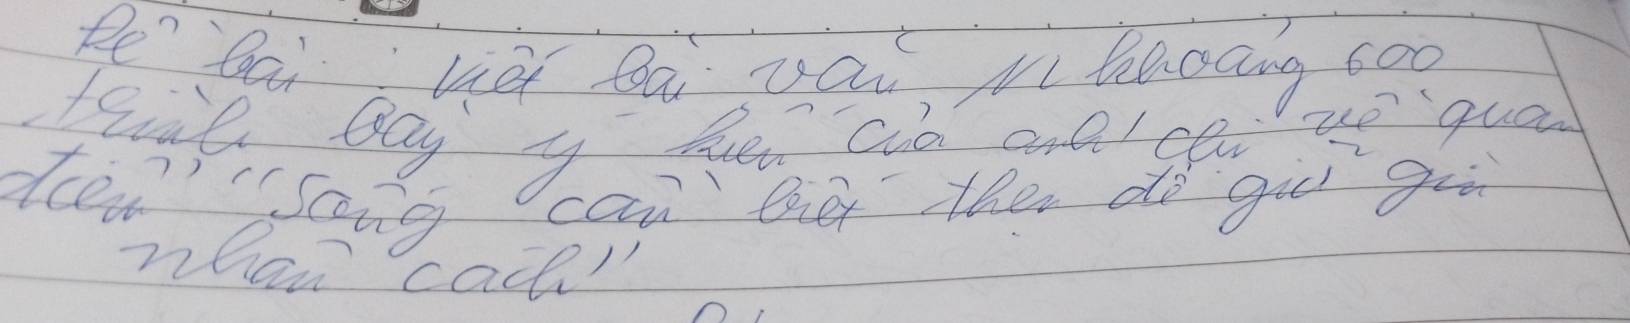 Đề bài: Viết bài văn NL khoảng 600
trình bày ý kiến của anh/chị về quan
điểm "Sống cần biết thẹn để giữ gìn
nhân cách"